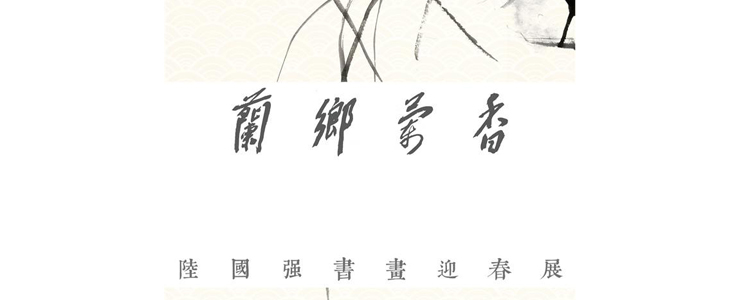 蘭鄉蘭香
陸國强書畫迎春展